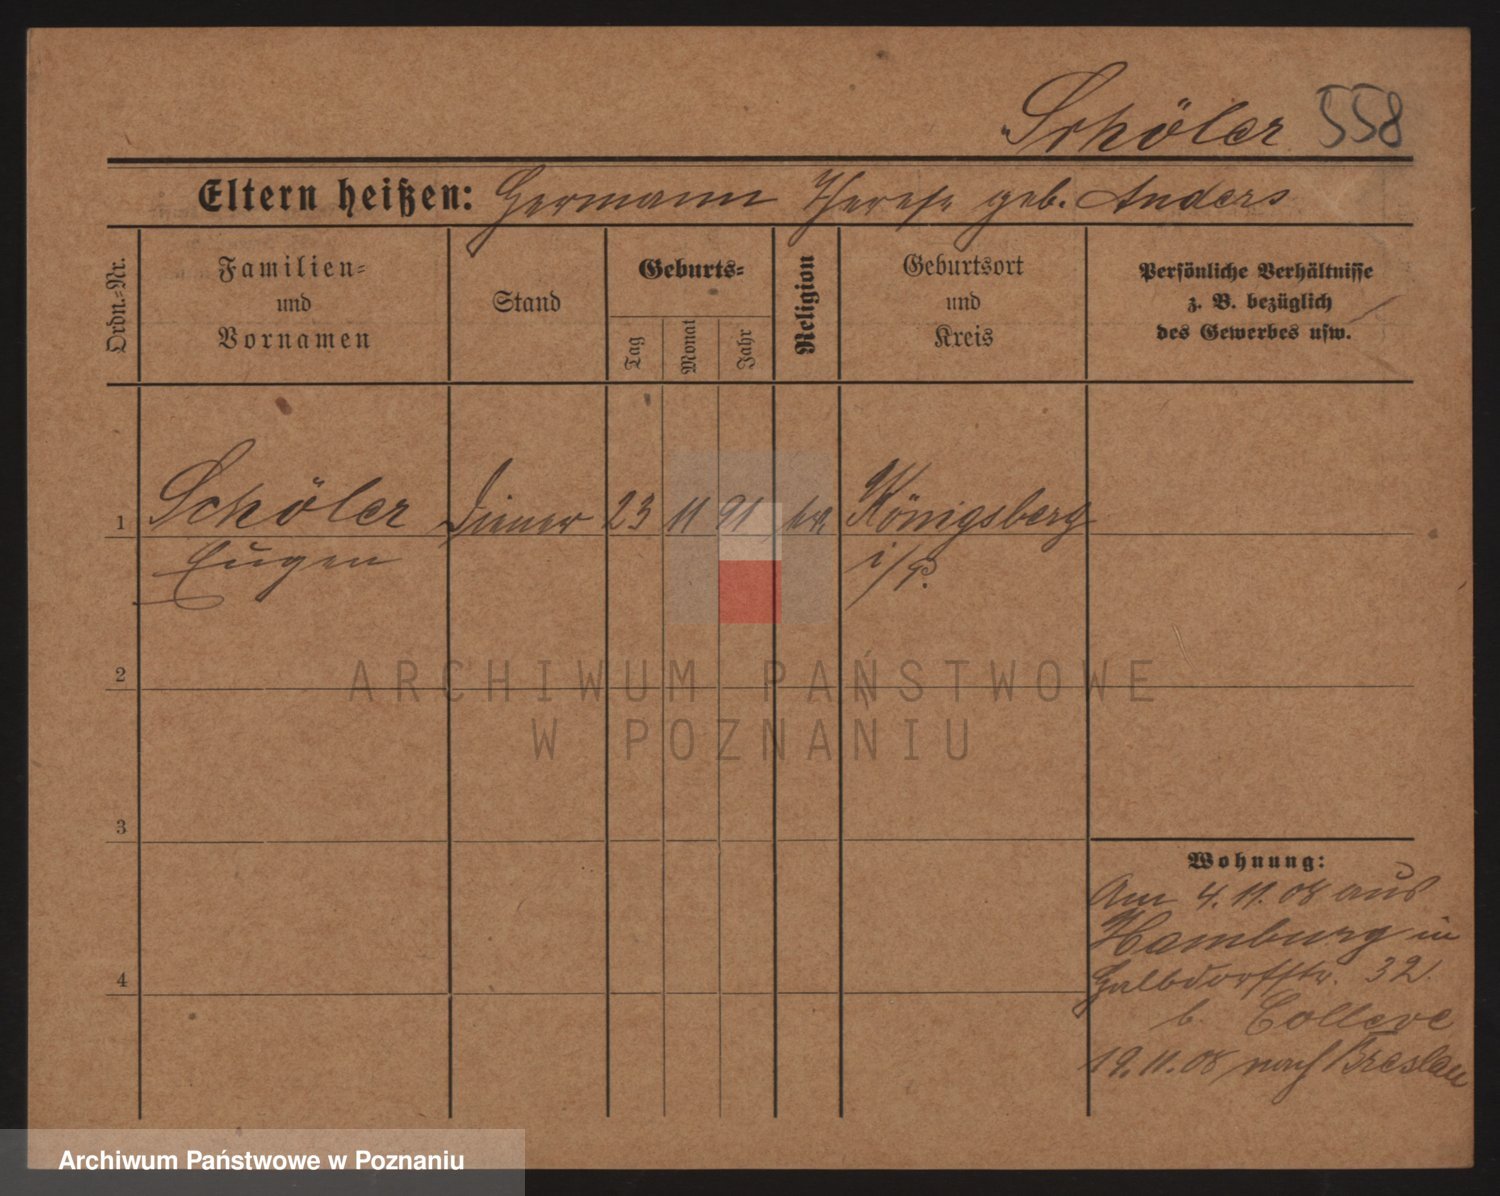 Schöler 558
Eltern heißen: Hermann Therese geb. Anders
Ordn.-Nr.
Familien-
und
Vornamen
Stand
Geburts-
Tag
Monat
Jahr
Religion
Geburtsort
und
Kreis
Persönliche Verhältnisse
z. B. bezüglich
des Gewerbes usw.
1 Schöler Diener 23 11 91 Königsberg
Eugen i/P.
2
3
4
Wohnung:
Am 4.11.08 aus
Hamburg in
Halbdorfstr. 32.
b.
19.11.08 nach Breslau
ARCHIWUM PAŃSTWOWE
W POZNANIU
Archiwum Państwowe w Poznaniu